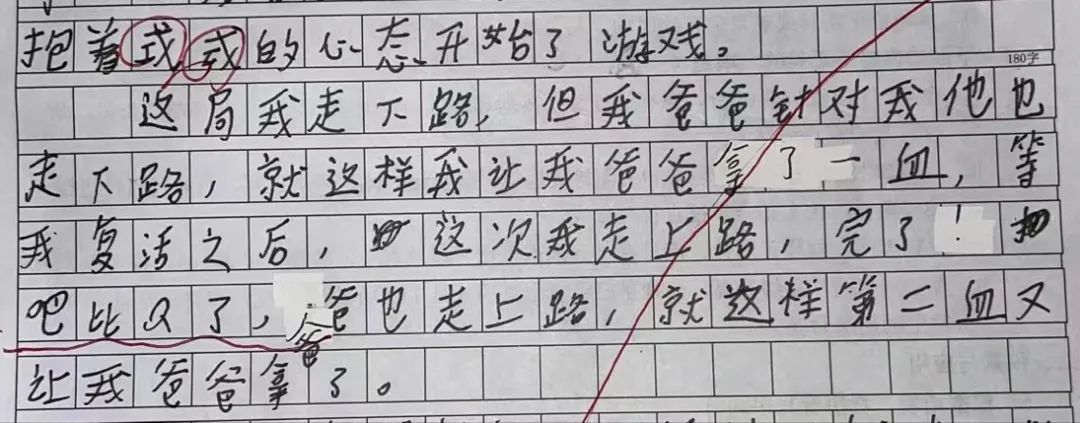 抱着式式的心态开始了游戏。
180字
这局我走下路，但我爸爸针对我他也
走下路，就这样我让我爸爸拿了一血，等
我复活之后，这次我走上路，完了！
吧比Q了，爸爸也走上路，就这样第二血又
让我爸爸拿了。